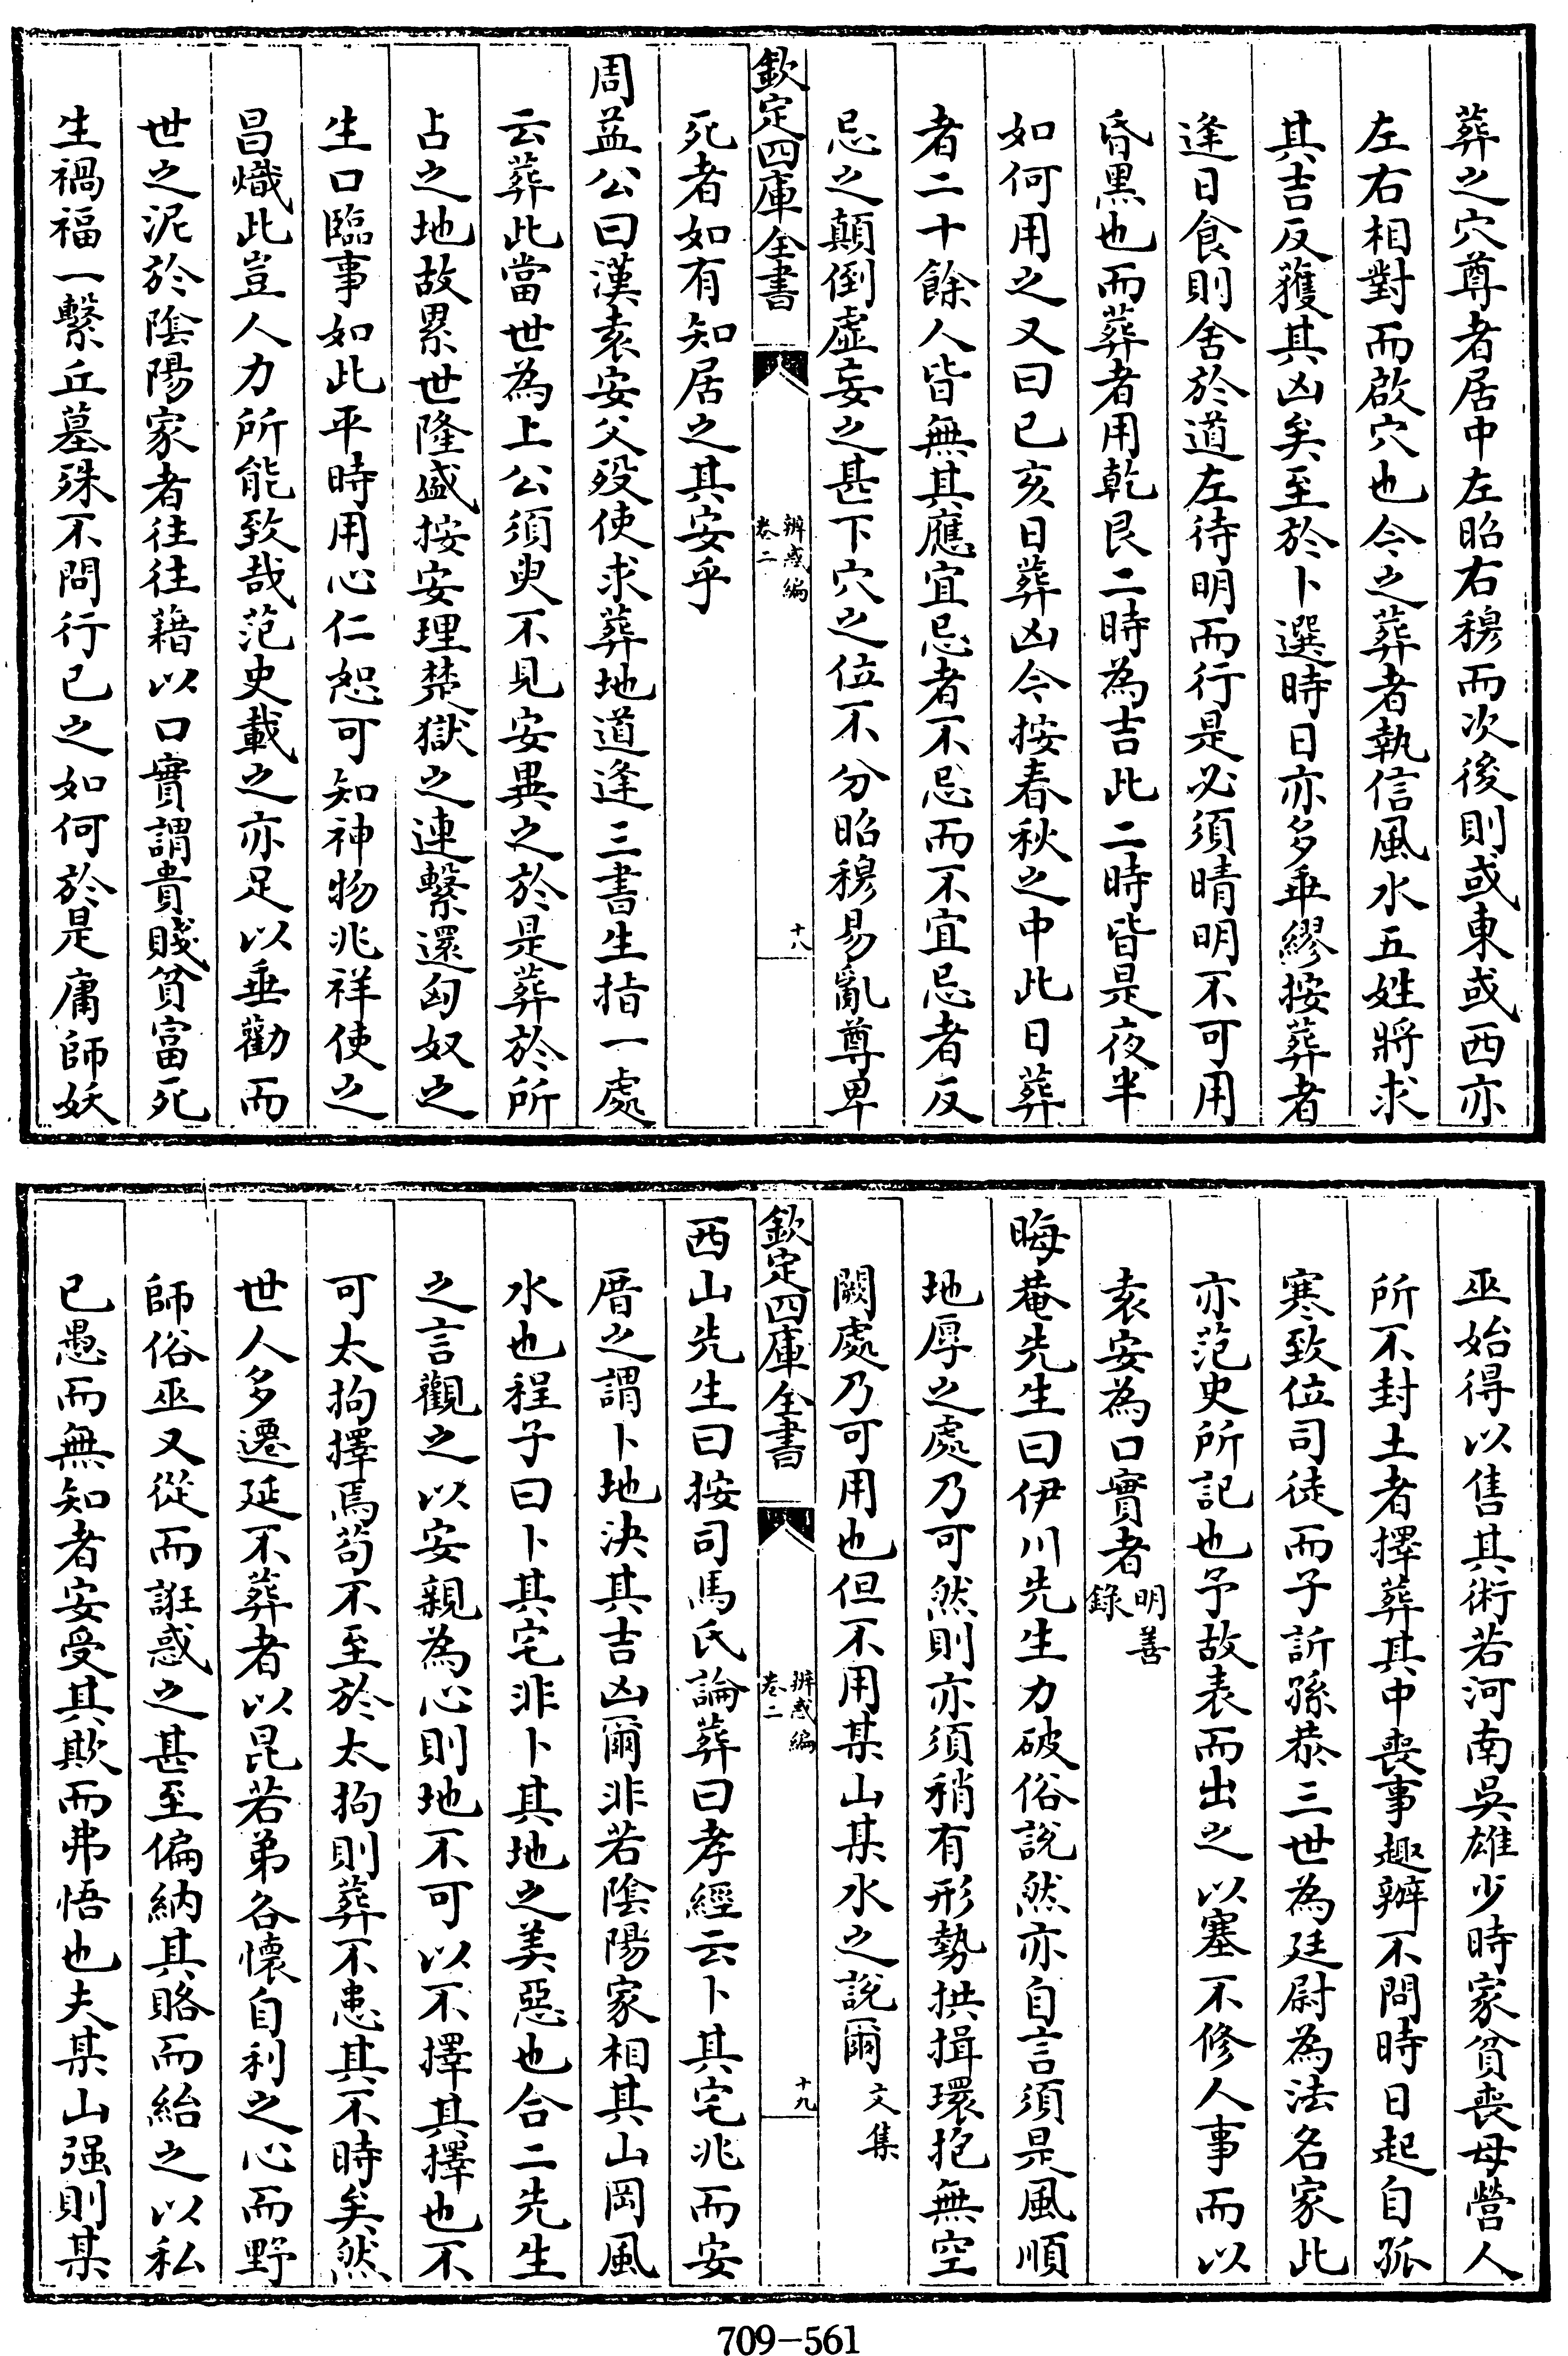 葬之穴尊者居中左昭右穆而次後則或東或西亦
左右相對而啟穴也今之葬者執信風水五姓將求
其吉反獲其凶矣至於卜選時日亦多乖繆按葬者
逢日食則舍於道左待明而行是必須晴明不可用
昏黑也而葬者用乾艮二時為吉此二時皆是夜半
如何用之又曰已亥日葬凶今按春秋之中此日葬
者二十餘人皆無其應宜忌者不忌而不宜忌者反
忌之顛倒虛妄之甚下穴之位不分昭穆易亂尊卑
欽定四庫全書
辨惑編
卷二
十八
死者如有知居之其安乎
周益公曰漢袁安父歿使求葬地道逢三書生指一處
云葬此當世為上公須臾不見安異之於是葬於所
占之地故累世隆盛按安理楚獄之連繫還匈奴之
生口臨事如此平時用心仁恕可知神物兆祥使之
昌熾此豈人力所能致哉范史載之亦足以垂勸而
世之泥於陰陽家者往往藉以口實謂貴賤貧富死
生禍福一繫丘墓殊不問行已之如何於是庸師妖
巫始得以售其術若河南吳雄少時家貧喪母營人
所不封土者擇葬其中喪事趣辦不問時日起自孤
寒致位司徒而子訢孫恭三世為廷尉為法名家此
亦范史所記也予故表而出之以塞不修人事而以
袁安為口實者明善錄
晦菴先生曰伊川先生力破俗說然亦自言須是風順
地厚之處乃可然則亦須稍有形勢拱揖環抱無空
闕處乃可用也但不用某山某水之說爾文集
欽定四庫全書
辨惑編
卷二
十九
西山先生曰按司馬氏論葬曰孝經云卜其宅兆而安
厝之謂卜地決其吉凶爾非若陰陽家相其山岡風
水也程子曰卜其宅非卜其地之美惡也合二先生
之言觀之以安親為心則地不可以不擇其擇也不
可太拘擇焉苟不至於太拘則葬不患其不時矣然
世人多遷延不葬者以昆若弟各懷自利之心而野
師俗巫又從而誑惑之甚至偏納其賂而紿之以私
已愚而無知者安受其欺而弗悟也夫某山强則某
709-561